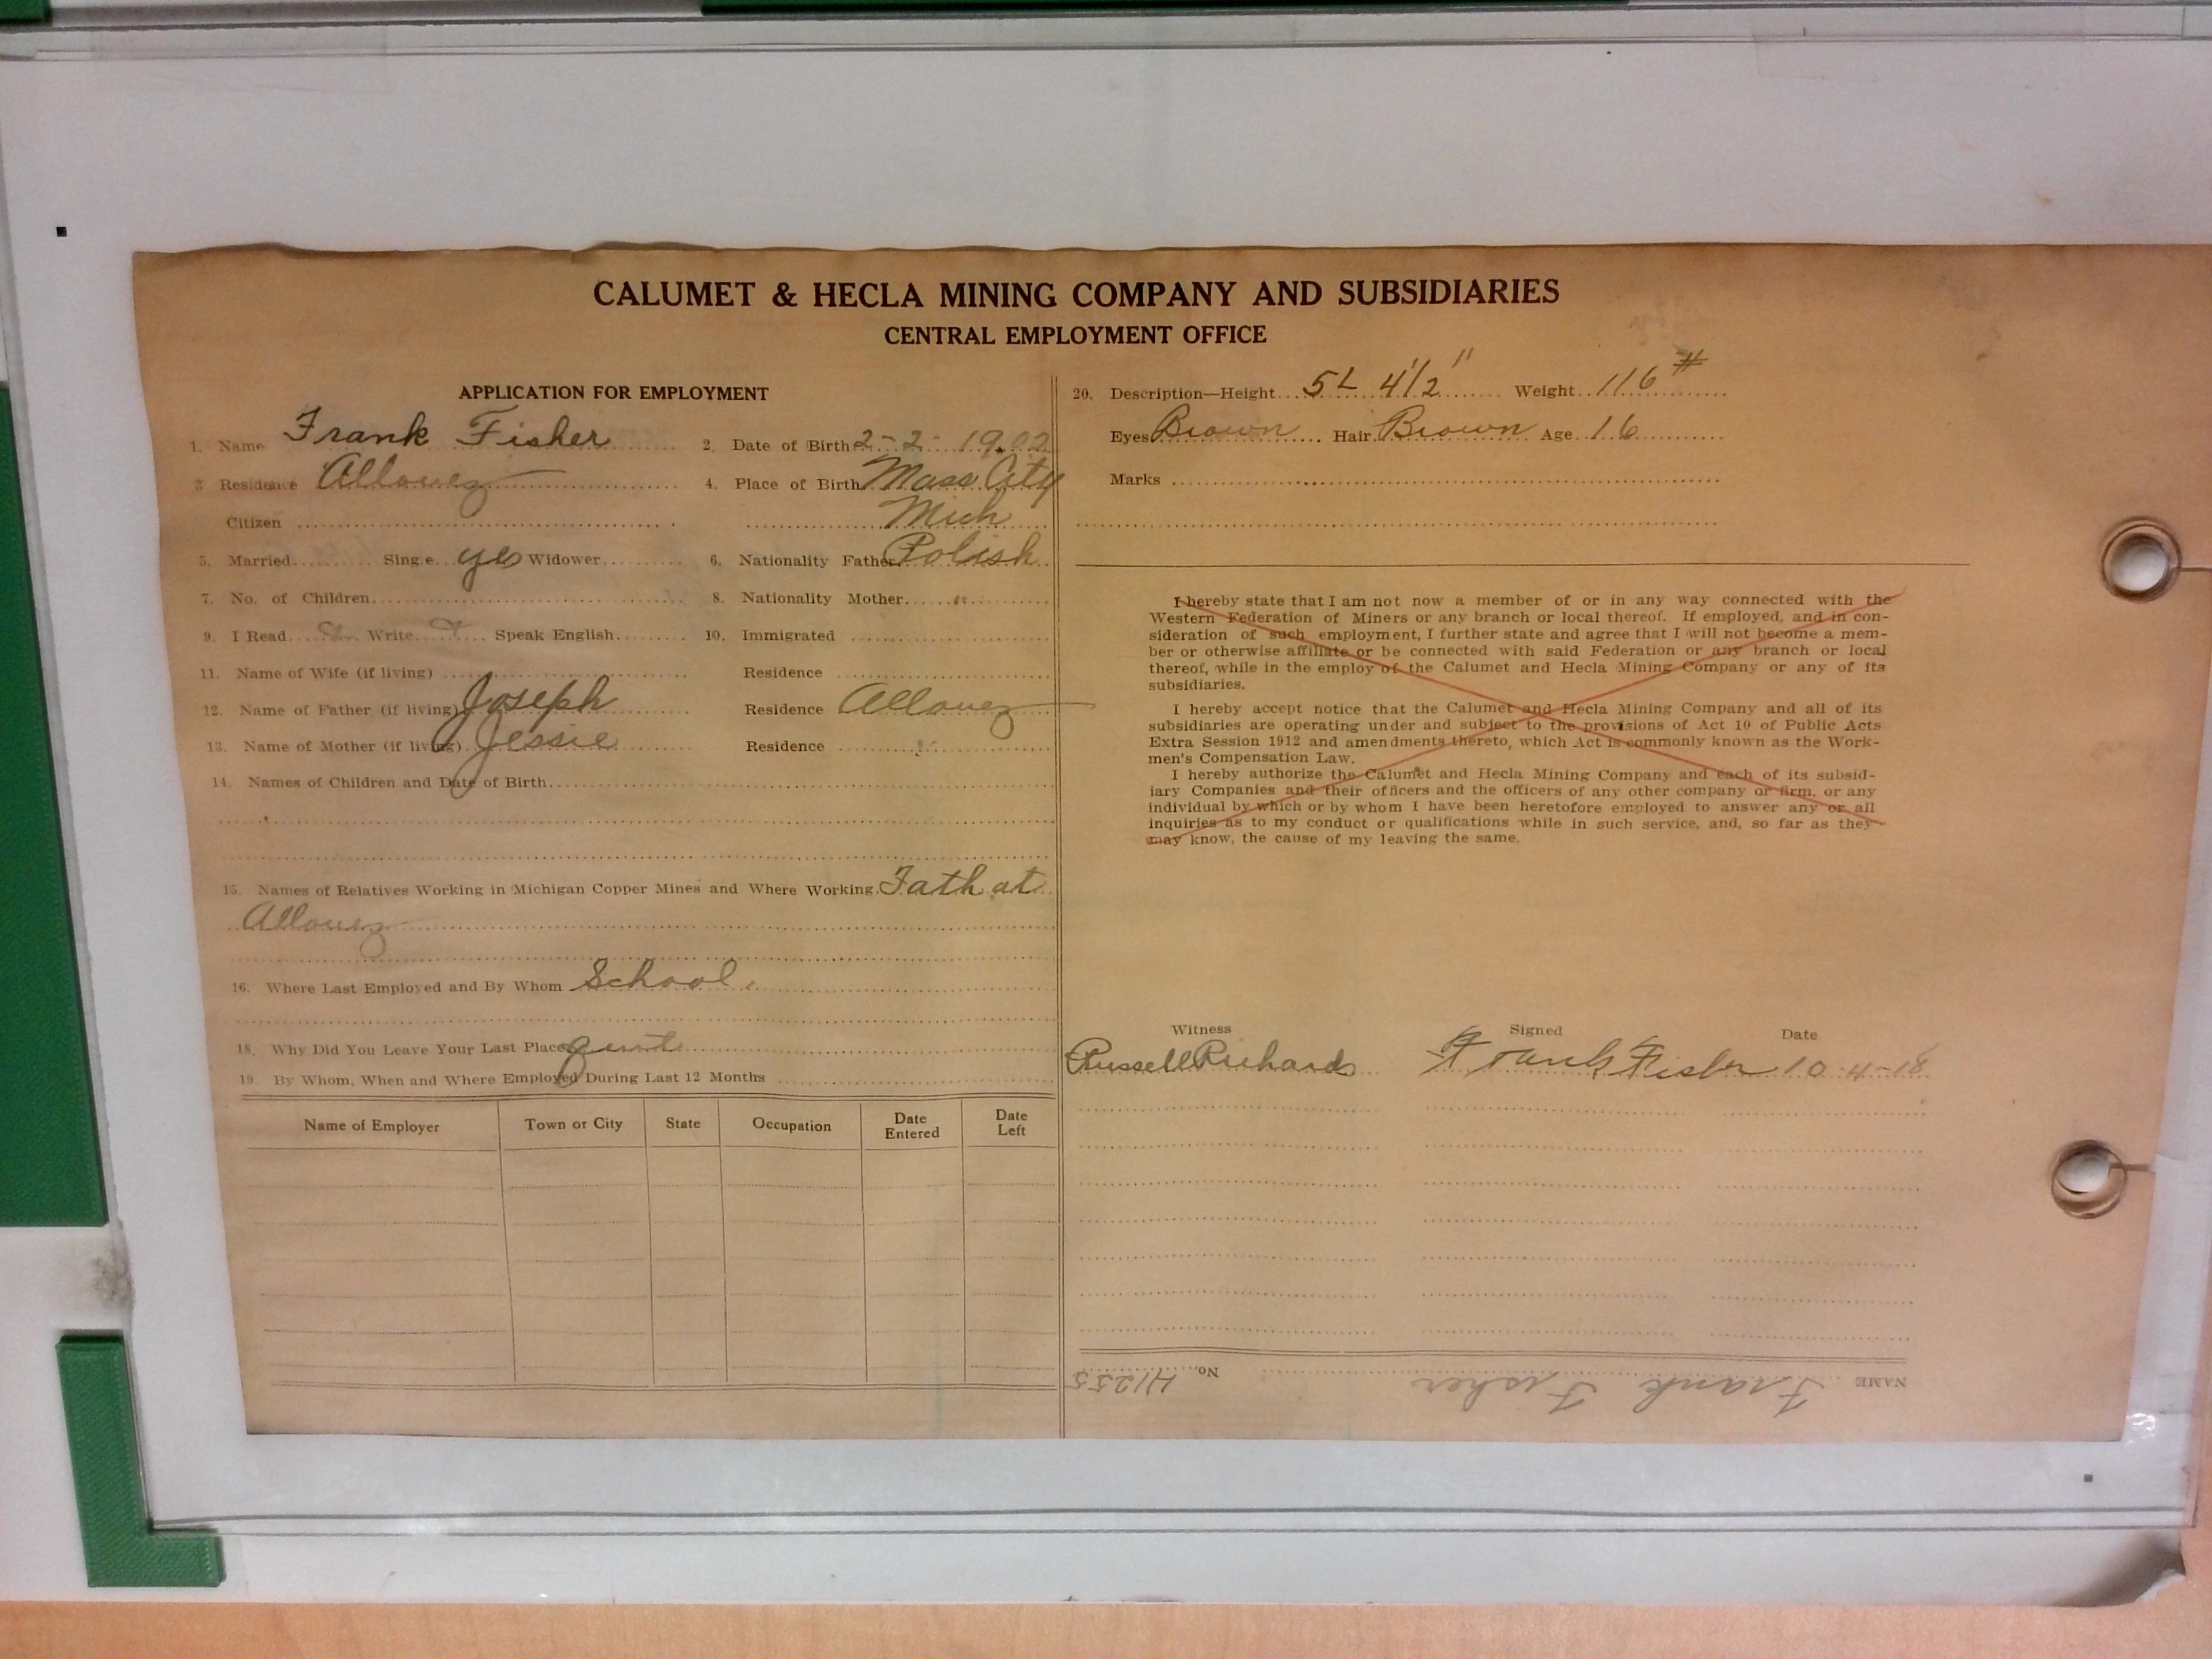 CALUMET & HECLA MINING COMPANY AND SUBSIDIARIES
CENTRAL EMPLOYMENT OFFICE
APPLICATION FOR EMPLOYMENT
1. Name Frank Fisher 2. Date of Birth 2-2-1902
3 Residence Allouez 4. Place of Birth Mass City
Citizen Mich
5. Married Sing e yes Widower 6. Nationality Father Polish
7. No. of Children 8. Nationality Mother "
9. I Read Write Speak English 10. Immigrated
11. Name of Wife (if living) Residence
12. Name of Father (if living) Joseph Residence Allouez
13. Name of Mother (if living) Jessie Residence "
14. Names of Children and Date of Birth
15. Names of Relatives Working in Michigan Copper Mines and Where Working. Fath at
Allouez
16. Where Last Employed and By Whom School.
18. Why Did You Leave Your Last Place quit
19 By Whom, When and Where Employed During Last 12 Months
Name of Employer Town or City State Occupation Date Entered Date Left
20. Description—Height 5L 4 1/2" Weight 116#
Eyes Brown Hair Brown Age 16
Marks
I hereby state that I am not now a member of or in any way connected with the
Western Federation of Miners or any branch or local thereof. If employed, and in con-
sideration of such employment, I further state and agree that I will not become a mem-
ber or otherwise affiliate or be connected with said Federation or any branch or local
thereof, while in the employ of the Calumet and Hecla Mining Company or any of its
subsidiaries.
I hereby accept notice that the Calumet and Hecla Mining Company and all of its
subsidiaries are operating under and subject to the provisions of Act 10 of Public Acts
Extra Session 1912 and amendments thereto, which Act is commonly known as the Work-
men's Compensation Law.
I hereby authorize the Calumet and Hecla Mining Company and each of its subsid-
iary Companies and their officers and the officers of any other company or firm, or any
individual by which or by whom I have been heretofore employed to answer any or all
inquiries as to my conduct or qualifications while in such service, and, so far as they
may know, the cause of my leaving the same.
Witness Signed Date
Russell Richards Frank Fisher 10-4-18
NAME Frank Fisher No. H1255